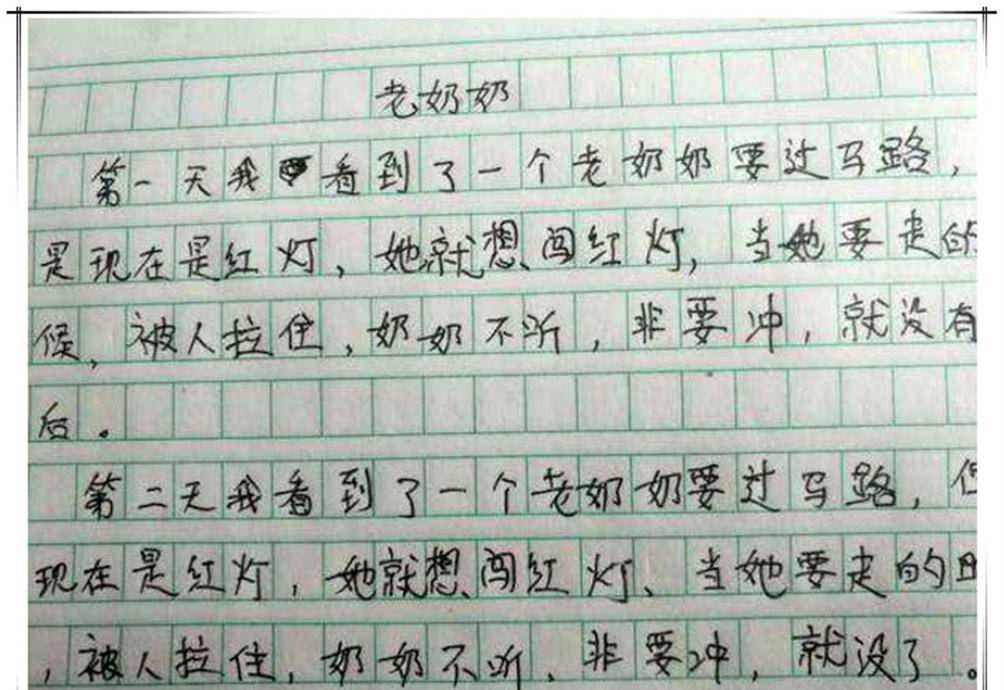 老奶奶
第一天我看到了一个老奶奶要过马路，
是现在是红灯，她就想闯红灯，当她要走的
候，被人拉住，奶奶不听，非要冲，就没有
后。
第二天我看到了一个老奶奶要过马路，
现在是红灯，她就想闯红灯、当她要走的
，被人拉住，奶奶不听，非要冲，就没了。